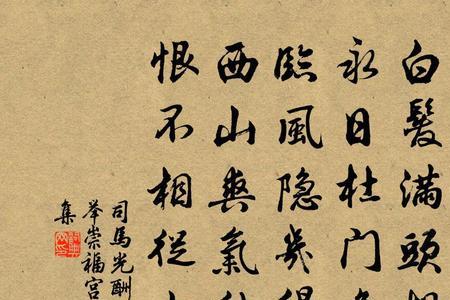 白髮滿頭
永日杜門
臨風隐幾
西山爽氣
恨不相從
司馬光酬
舉崇福宫
集